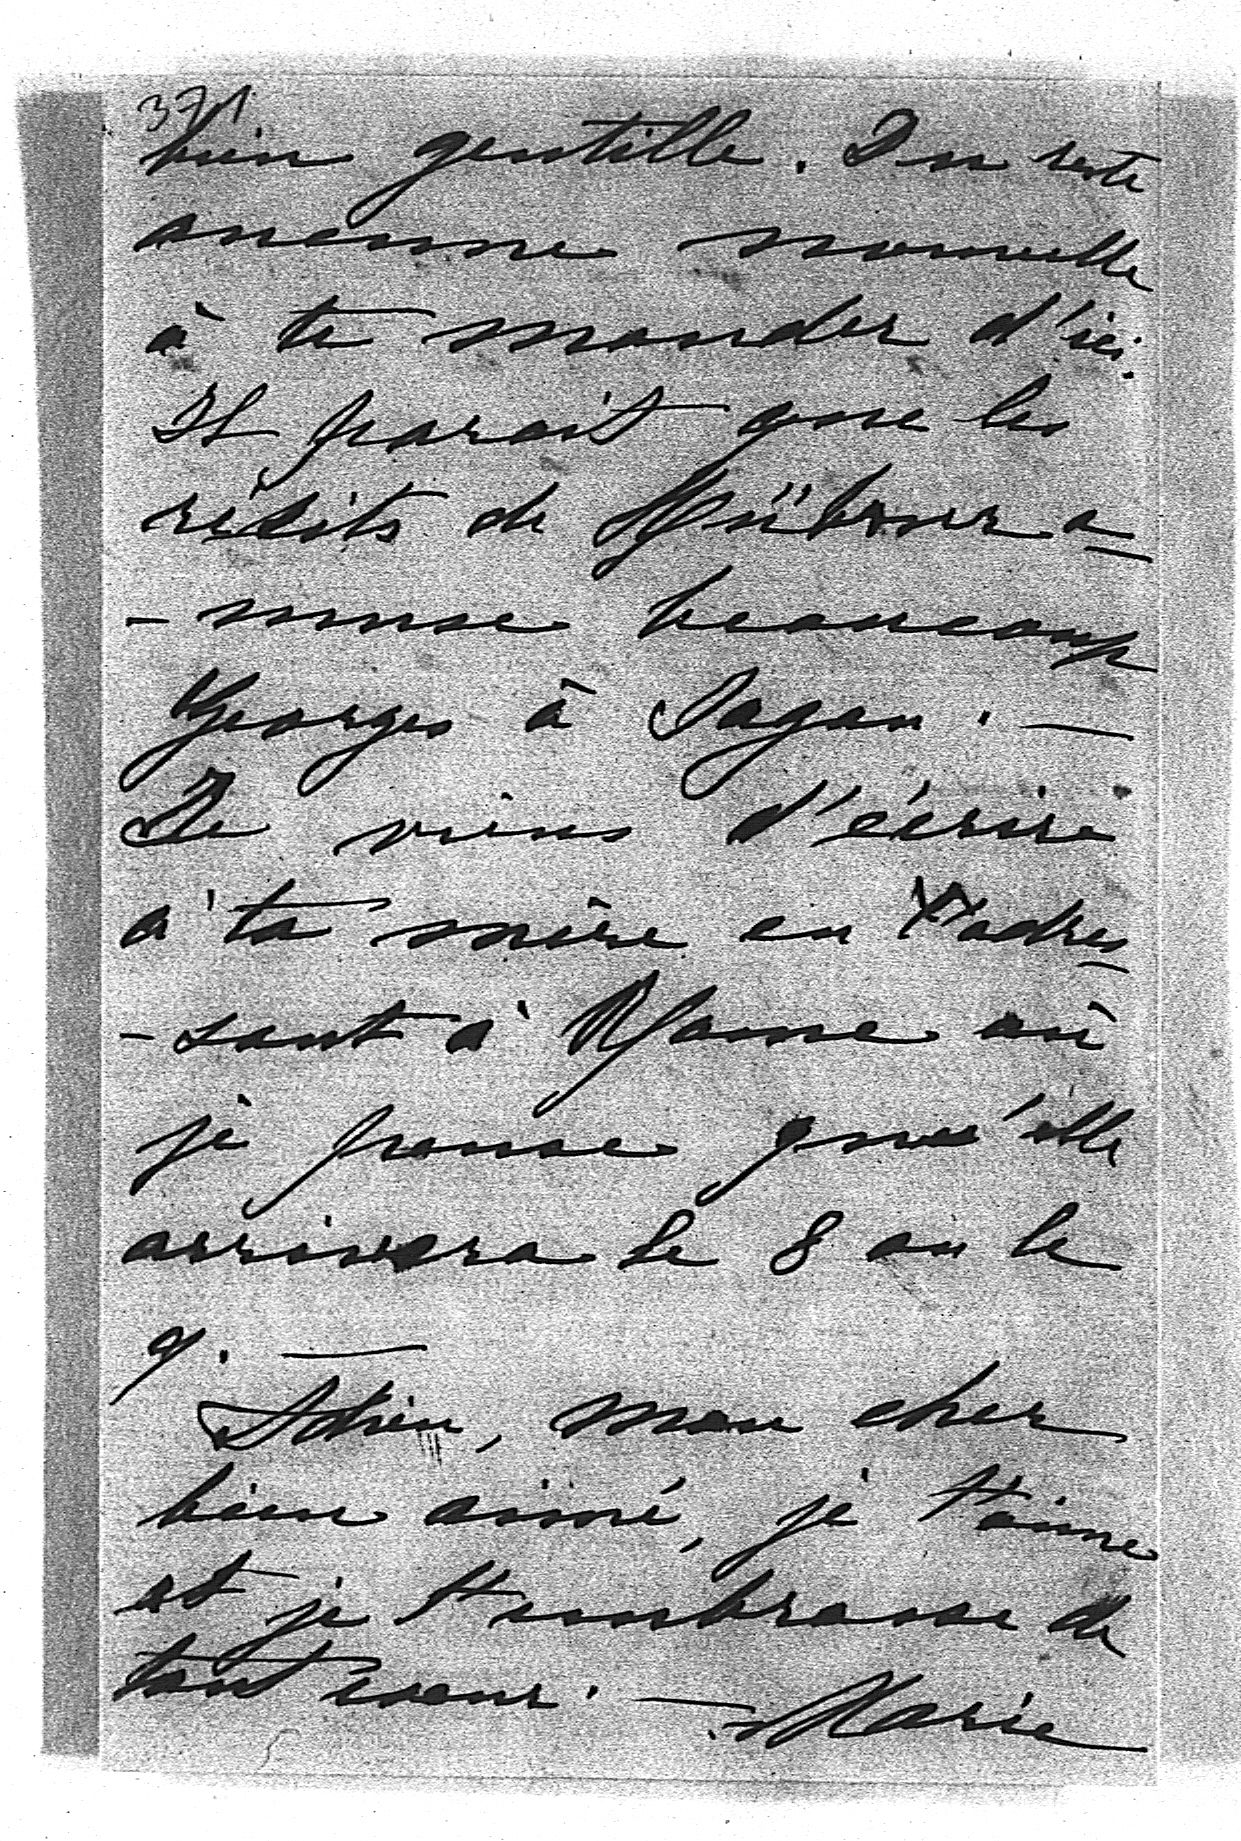 371
bien gentille. Du reste
aucune nouvelle
à te mander d'ici.
Il paraît que les
récits de Hübner a-
-muse beaucoup
Georges à Sagan. —
Je viens d'écrire
à ta mère en l'adres-
-sant à Rome où
je pense qu'elle
arrivera le 8 ou le
9. —
Adieu, mon cher
bien aimé, je t'aime
et je t'embrasse de
tout coeur. —
Marie